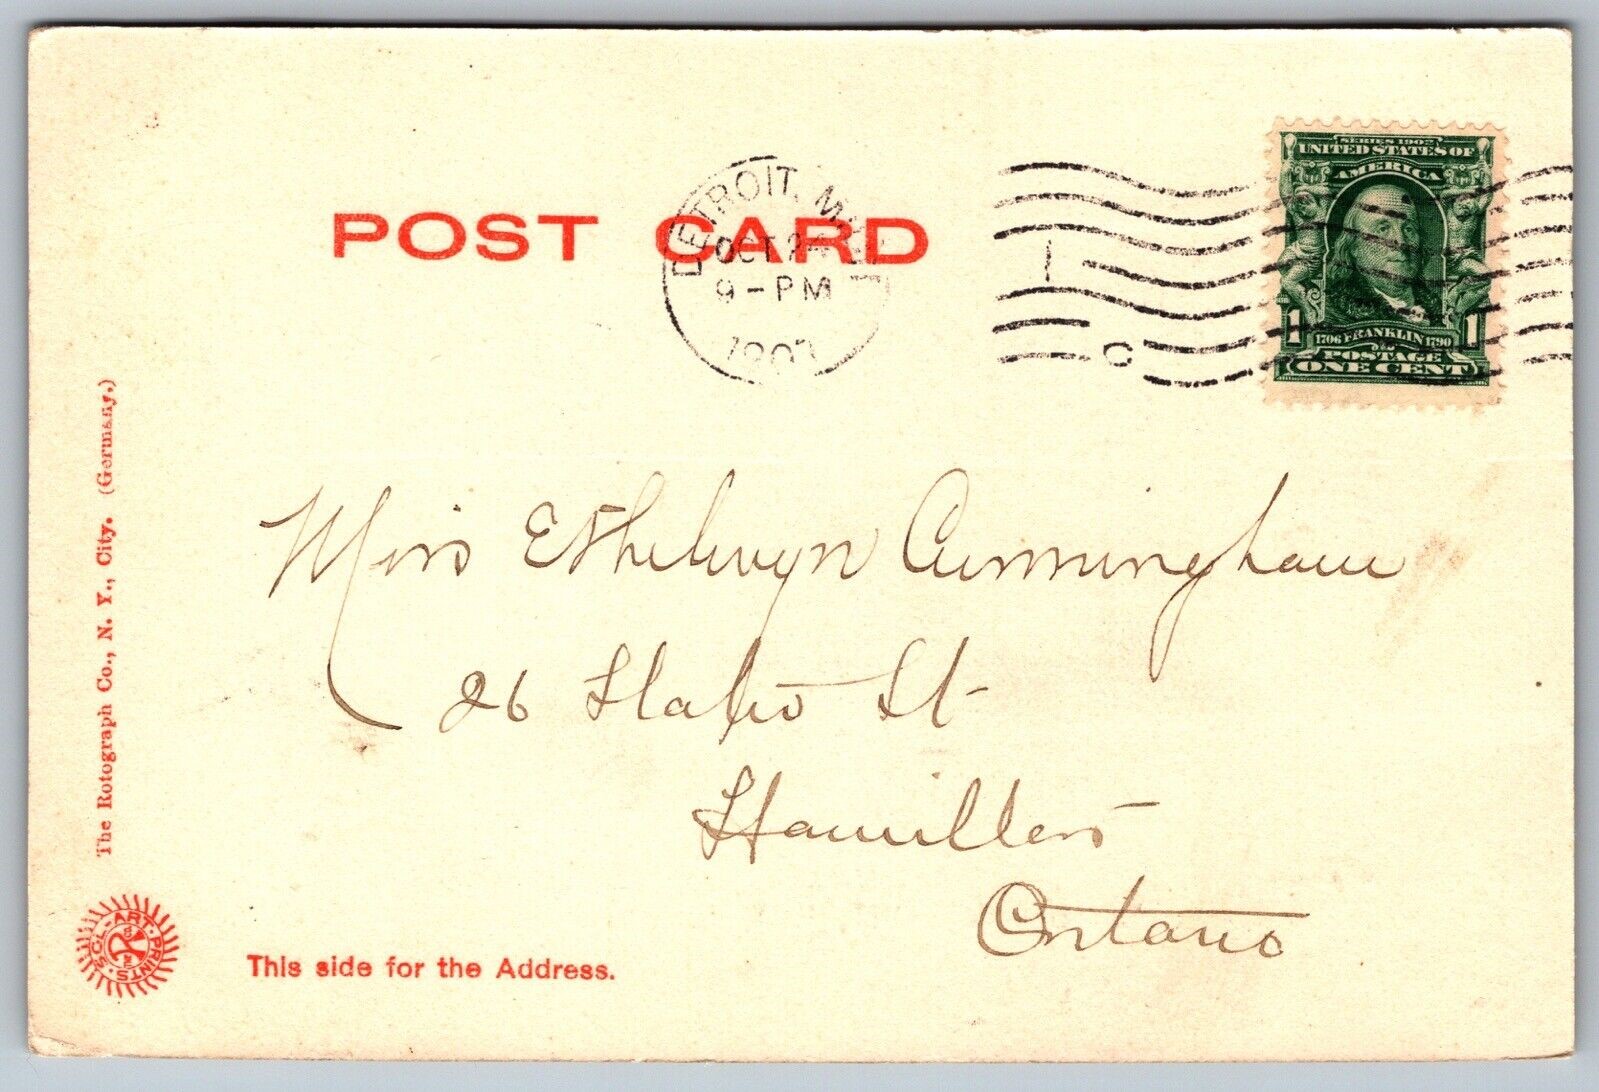 POST CARD
DETROIT, MICH
OCT 24
9-PM
1
C
SERIES 1902
UNITED STATES OF
AMERICA
1706 FRANKLIN 1790
1 1
POSTAGE
ONE CENT
Miss Ethelwyn Cunningham
26 St
Hamilton
Ontario
The Rotograph Co., N. Y., City. (Germany.)
SOL-ART PRINTS
This side for the Address.